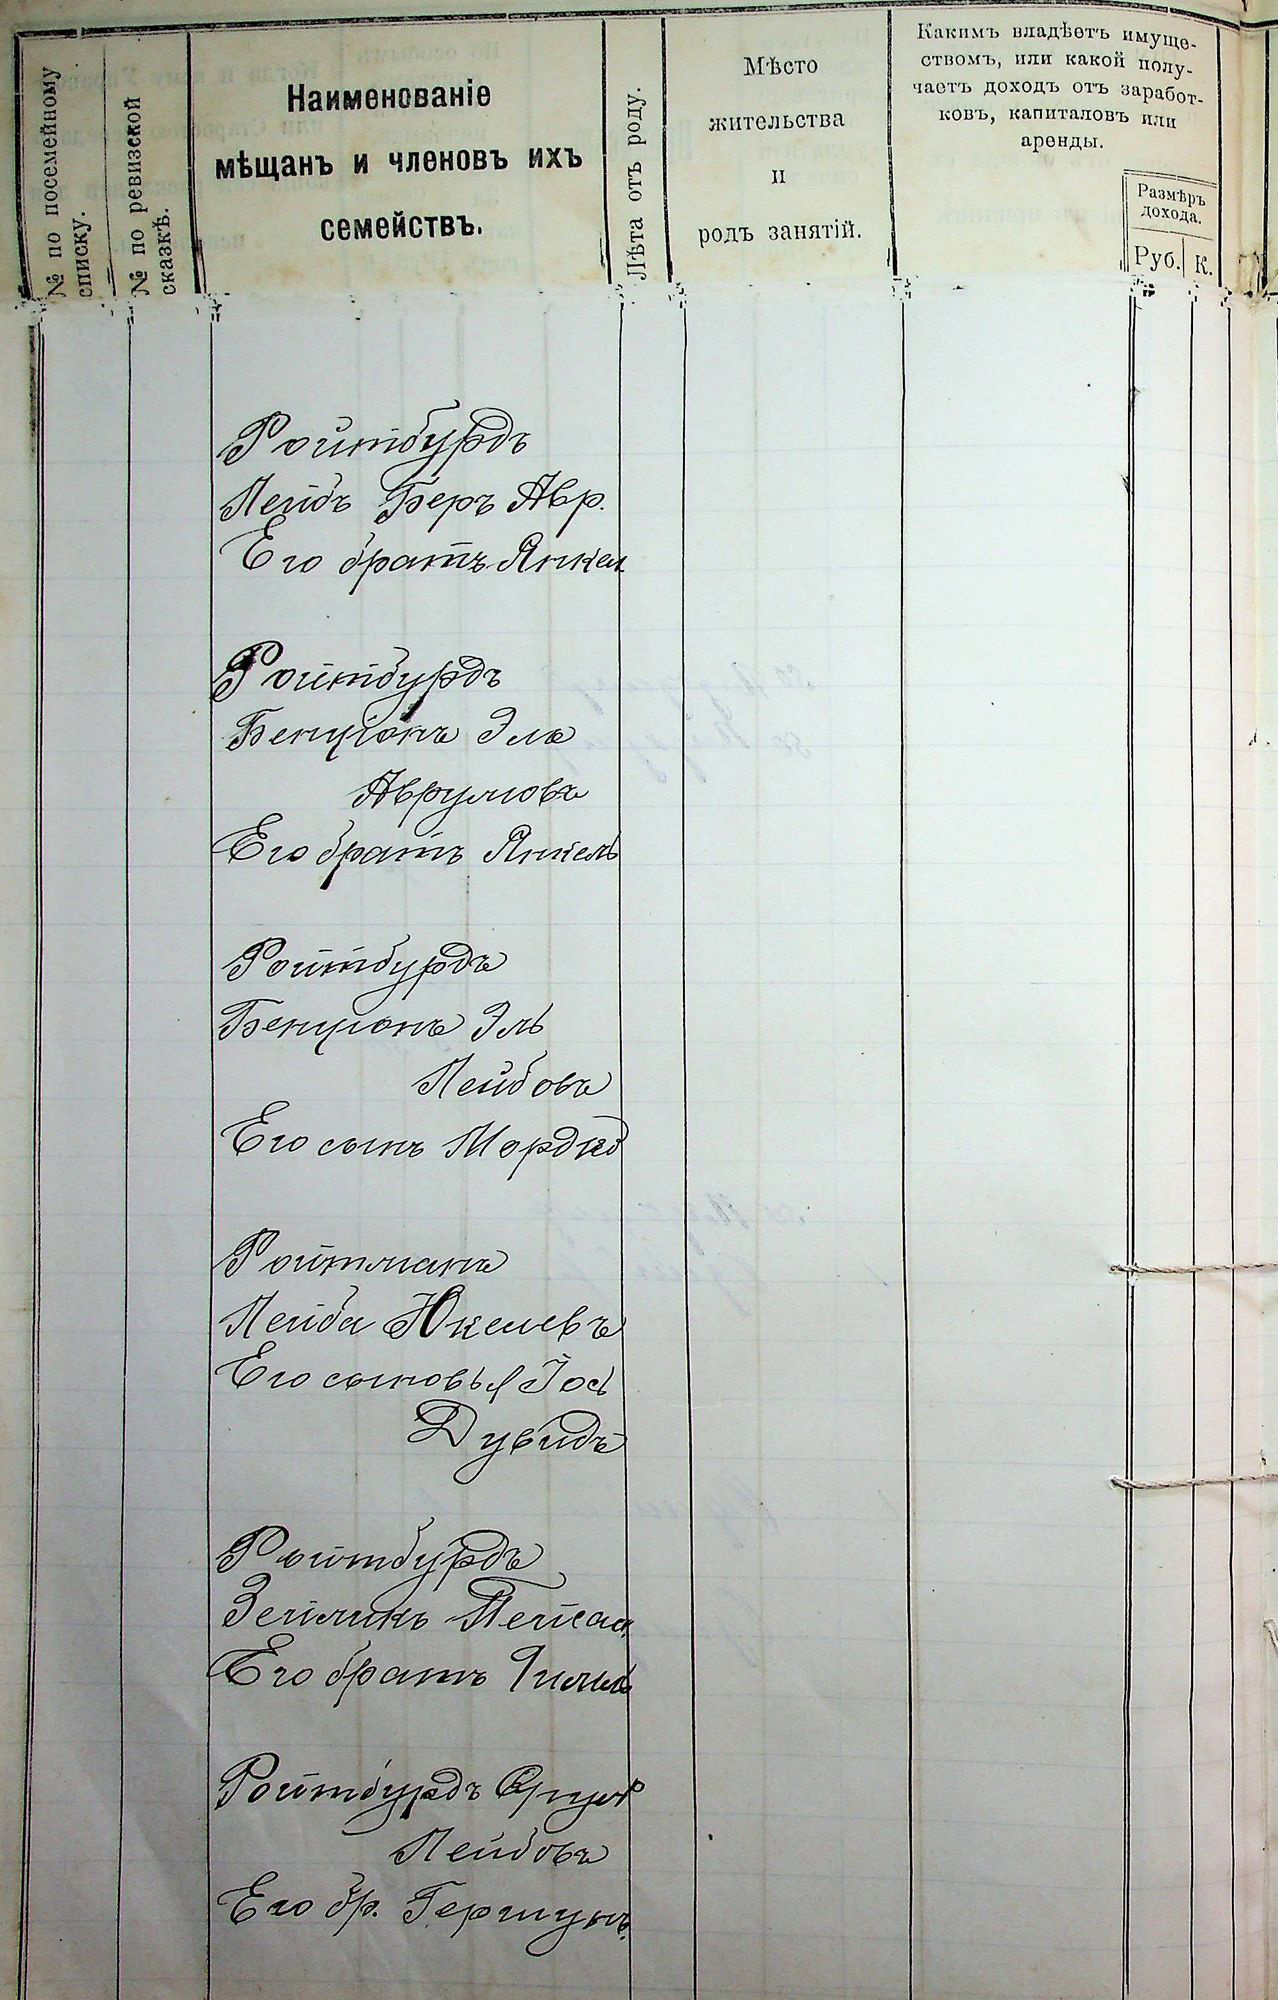 № по посемейному
списку.
№ по ревизской
сказкѣ.
Наименованіе
мѣщанъ и членовъ ихъ
семействъ.
Лѣта отъ роду.
Мѣсто
жительства
и
родъ занятій.
Какимъ владѣетъ имуще-
ствомъ, или какой полу-
чаетъ доходъ отъ заработ-
ковъ, капиталовъ или
аренды.
Размѣръ
дохода.
Руб. К.
Ройтбурдъ
Лейбъ Беръ Авр.
Его братъ Янкел
Ройтбурдъ
Бенціонъ Эль
Аврумовъ
Его братъ Янкель
Ройтбурдъ
Бенціонъ Эль
Лейбовъ
Его сынъ Мордко
Ройтманъ
Лейба Юкелевъ
Его сыновья Іось
Дувидъ
Ройтбурдъ
Зейликъ Пейсах.
Его братъ
Ройтбурдъ Срул
Лейбовъ
Его бр. Гершунъ.